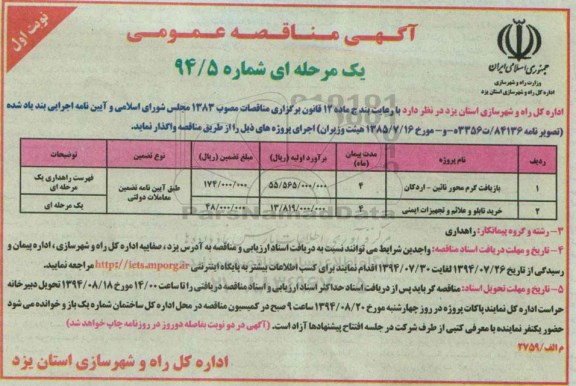 نوبت اول
آگهی مناقصه عمومی
یک مرحله ای شماره ۹۴/۵
جمهوری اسلامی ایران
وزارت راه و شهرسازی
اداره کل راه و شهرسازی استان یزد
اداره کل راه و شهرسازی استان یزد در نظر دارد با رعایت بند ج ماده ۱۳ قانون برگزاری مناقصات مصوب ۱۳۸۳ مجلس شورای اسلامی و آیین نامه اجرایی بند یاد شده
(تصویر نامه ۸۴۱۳۶/ت۳۳۵۶۰ه-و- مورخ ۱۳۸۵/۷/۱۶ هیئت وزیران) اجرای پروژه های ذیل را از طریق مناقصه واگذار نماید.
ردیف نام پروژه مدت پیمان (ماه) برآورد اولیه (ریال) مبلغ تضمین (ریال) نوع تضمین توضیحات
۱ بازیافت گرم محور نائین - اردکان ۴ ۵۵/۵۶۵/۰۰۰/۰۰۰ ۱۷۴/۰۰۰/۰۰۰ طبق آیین نامه تضمین معاملات دولتی فهرست راهداری یک مرحله ای
۲ خرید تابلو و علائم و تجهیزات ایمنی ۴ ۱۳/۸۱۹/۰۰۰/۰۰۰ ۴۸/۰۰۰/۰۰۰ یک مرحله ای
۳- رشته و گروه پیمانکار: راهداری
۴- تاریخ و مهلت دریافت اسناد مناقصه: واجدین شرایط می توانند نسبت به دریافت اسناد ارزیابی و مناقصه به آدرس یزد، صفاییه اداره کل راه و شهرسازی، اداره پیمان و
رسیدگی از تاریخ ۱۳۹۴/۰۷/۲۶ لغایت ۱۳۹۴/۰۷/۳۰ اقدام نمایند برای کسب اطلاعات بیشتر به پایگاه اینترنتی http://iets.mporg.ir مراجعه نمایید.
۵- تاریخ و مهلت تحویل اسناد: مناقصه گر باید پس از دریافت اسناد حداکثر اسناد ارزیابی و اسناد مناقصه دریافتی را تا ساعت ۱۴/۰۰ مورخ ۱۳۹۴/۰۸/۱۸ تحویل دبیرخانه
حراست اداره کل نمایند پاکات پروژه در روز چهارشنبه مورخ ۱۳۹۴/۰۸/۲۰ ساعت ۹ صبح در کمیسیون مناقصه در محل اداره کل ساختمان شماره یک باز و خوانده می شود
حضور یکنفر نماینده با معرفی کتبی از طرف شرکت در جلسه افتتاح پیشنهادها آزاد است. (آگهی در دو نوبت بفاصله دو روز در روزنامه چاپ خواهد شد)
م الف/۲۷۵۹
اداره کل راه و شهرسازی استان یزد